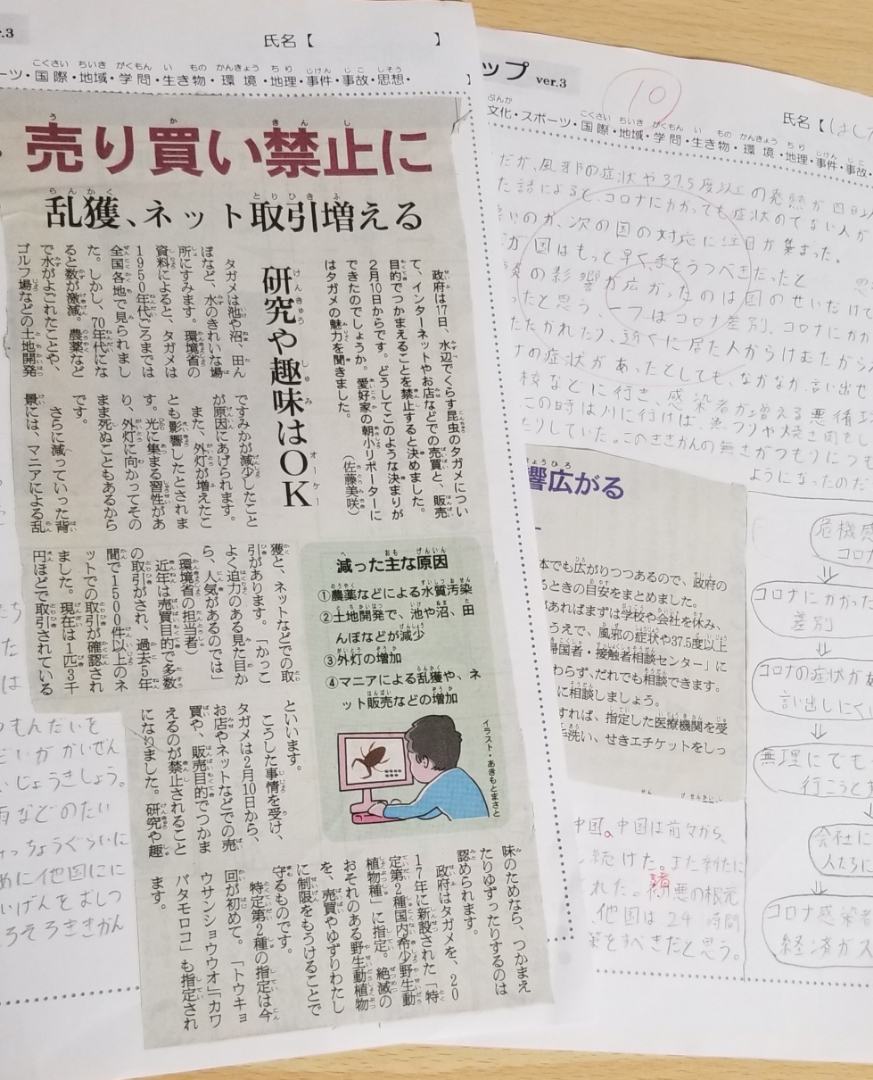 氏名【 】
・国際・地域・学問・生き物・環境・地理・事件・事故・思想・ 】
売り買い禁止に
乱獲、ネット取引増える
研究や趣味はOK
政府は17日、水辺でくらす昆虫のタガメについ
て、インターネットやお店などでの売買と、販売
目的でつかまえることを禁止すると決めました。
2月10日からです。どうしてこのような決まりが
できたのでしょうか。愛好家の朝小リポーターに
はタガメの魅力を聞きました。
(佐藤美咲)
タガメは池や沼、田ん
ぼなど、水のきれいな場
所にすみます。環境省の
資料によると、タガメは
1950年代ごろまでは
全国各地で見られまし
た。しかし、70年代にな
ると数が激減。農薬など
で水がよごれたことや、
ゴルフ場などの土地開発
ですみかが減少したこと
が原因にあげられます。
また、外灯が増えたこ
とも影響したとされま
す。光に集まる習性があ
り、外灯に向かってその
まま死ぬこともあるから
です。
さらに減っていった背
景には、マニアによる乱
獲と、ネットなどでの取
引があります。「かっこ
よく迫力のある見た目か
ら、人気があるのでは」
(環境省の担当者)
近年は売買目的で多数
の取引がされ、過去5年
間で1500件以上のネ
ットでの取引が確認され
ました。現在は1匹3千
円ほどで取引されている
といいます。
こうした事情を受け、
タガメは2月10日から、
お店やネットなどでの売
買や、販売目的でつかま
えるのが禁止されること
になりました。研究や趣
味のためなら、つかまえ
たりゆずったりするのは
認められます。
政府はタガメを、20
17年に新設された「特
定第2種国内希少野生動
植物種」に指定。絶滅の
おそれのある野生動植物
を、売買やゆずりわたし
に制限をもうけることで
守るものです。
特定第2種の指定は今
回が初めて。「トウキョ
ウサンショウウオ」「カワ
バタモロコ」も指定され
ます。
減った主な原因
①農薬などによる水質汚染
②土地開発で、池や沼、田
んぼなどが減少
③外灯の増加
④マニアによる乱獲や、ネ
ット販売などの増加
イラスト・あきもとまさと
もんだいを
かいぜん
じょうきしょう。
などのたい
ップ ver.3
10
氏名【
文化・スポーツ・国際・地域・学問・生き物・環境・地理・事件・事故・
だが、風邪の症状や37.5度以上の発熱が四日
た話によると、コロナにかかっても症状のでない人が
いのか、次の国の対応に注目が集まった。
が国はもっと早く、手をうつべきだったと
の影響が広がったのは国のせいだけで
ったと思う。一つはコロナ差別、コロナにかか
たたかれたり、近くに居た人からけむたがら
の症状があったとしても、なかなか言い出せ
校などに行き、感染者が増える悪循環
この時は川に行けば、魚つりや焼き肉をし
たりしていた。このききかんの無さがつもりにつも
ようになったのだ
響広がる
本でも広がりつつあるので、政府の
るときの目安をまとめました。
があればまずは学校や会社を休み、
うえで、風邪の症状や37.5度以上
帰国者・接触者相談センター」に
わらず、だれでも相談できます。
に相談しましょう。
すれば、指定した医療機関を受
手洗い、せきエチケットをしっ
危機感
コロナ
コロナにかかった
差別
コロナの症状が
言い出しにくい
無理にでも
行こうと
会社に
人たちに
コロナ感染
経済が
中国。中国は前々から
し続けた。また新たに
れた。諸悪の根元
他国は24時間
策をすべきだと思う。